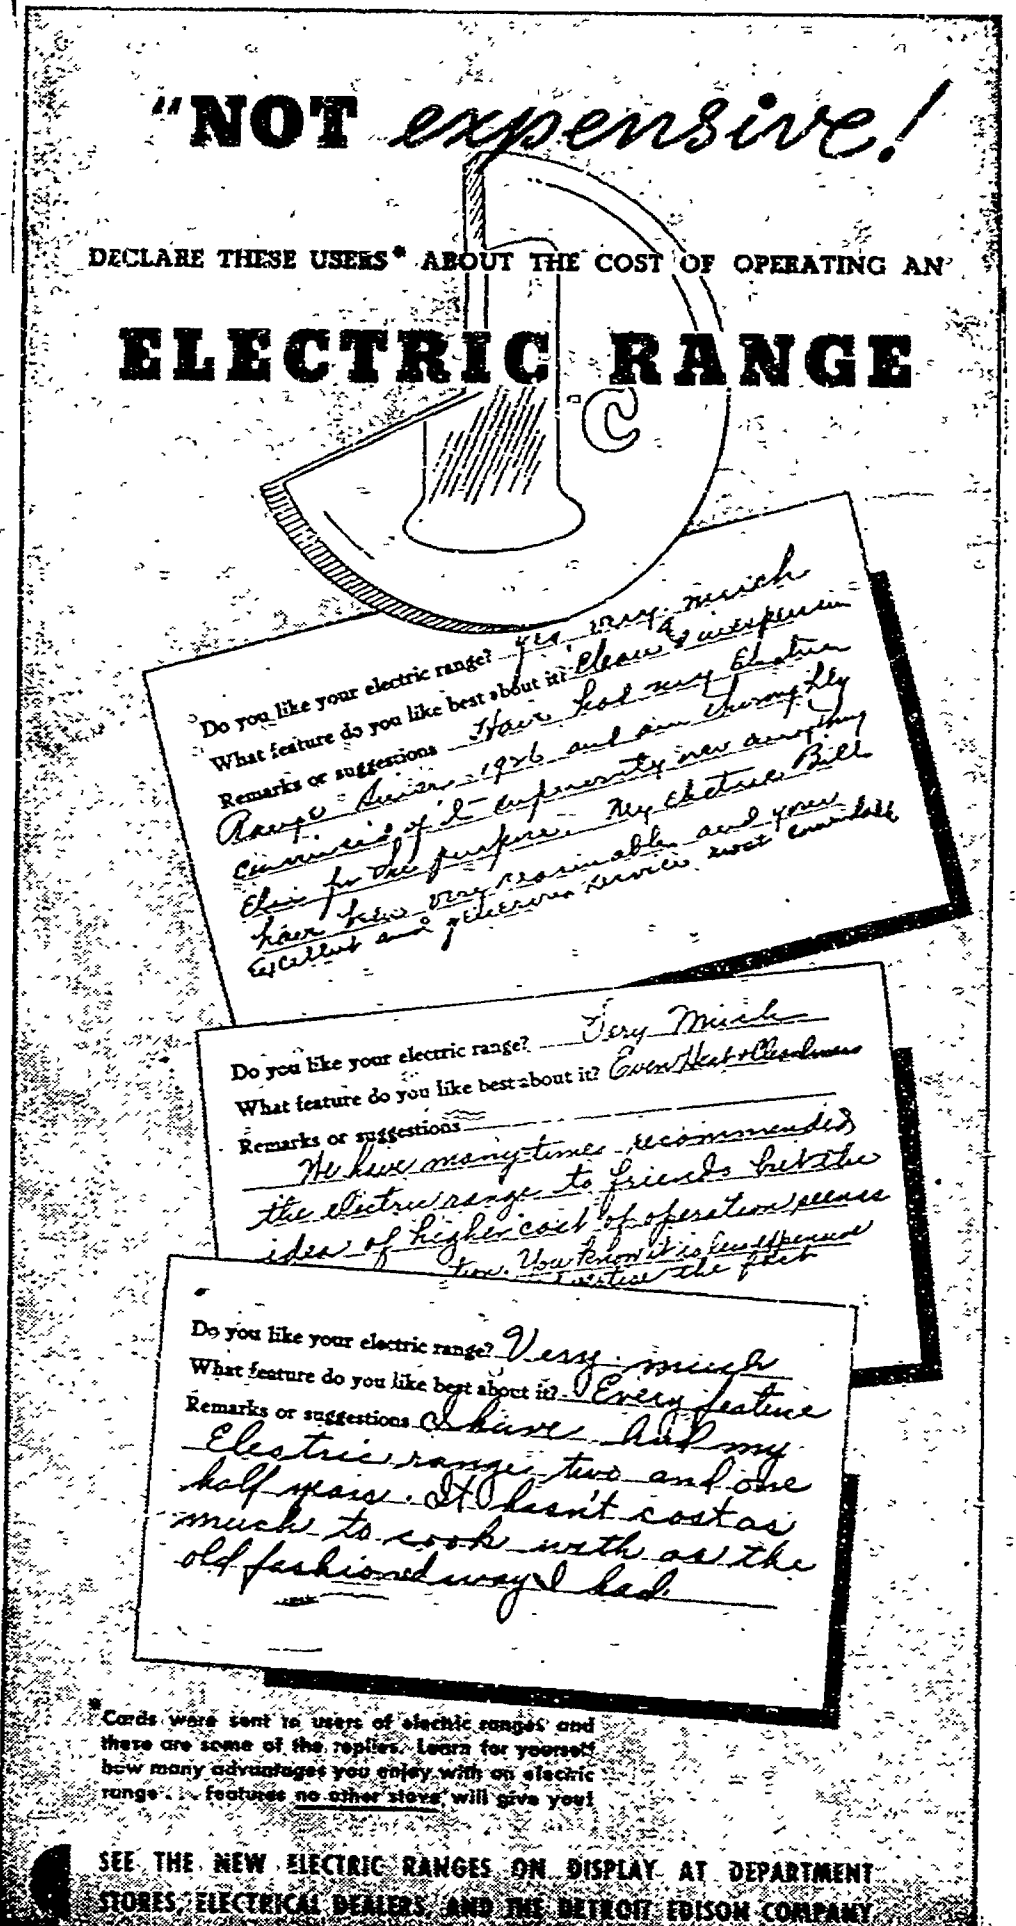 "NOT expensive!
DECLARE THESE USERS* ABOUT THE COST OF OPERATING AN
ELECTRIC RANGE
1¢
Do you like your electric range? yes, very much
What feature do you like best about it? Clean & inexpensive
Remarks or suggestions Have had my Electric
Range since 1926 and am thoroughly
convinced of it superiority over anything
Else for the purpose. My electric Bill
have been very reasonable and your
Excellent and generous service most
Do you like your electric range? Very Much
What feature do you like best about it? Even Heat & Cleanliness
Remarks or suggestions
We have many times recommended
the electric range to friends but the
idea of higher cost of operation seems
tion. You know it is less expensive
the fact
Do you like your electric range? Very much
What feature do you like best about it? Every feature
Remarks or suggestions I have had my
Electric range two and one
half years. It hasn't cost as
much to cook with as the
old fashioned way I had.
*Cards were sent to users of electric ranges and
these are some of the replies. Learn for yourself
how many advantages you enjoy with an electric
range . . . features no other stove will give you!
SEE THE NEW ELECTRIC RANGES ON DISPLAY AT DEPARTMENT
STORES, ELECTRICAL DEALERS, AND THE DETROIT EDISON COMPANY